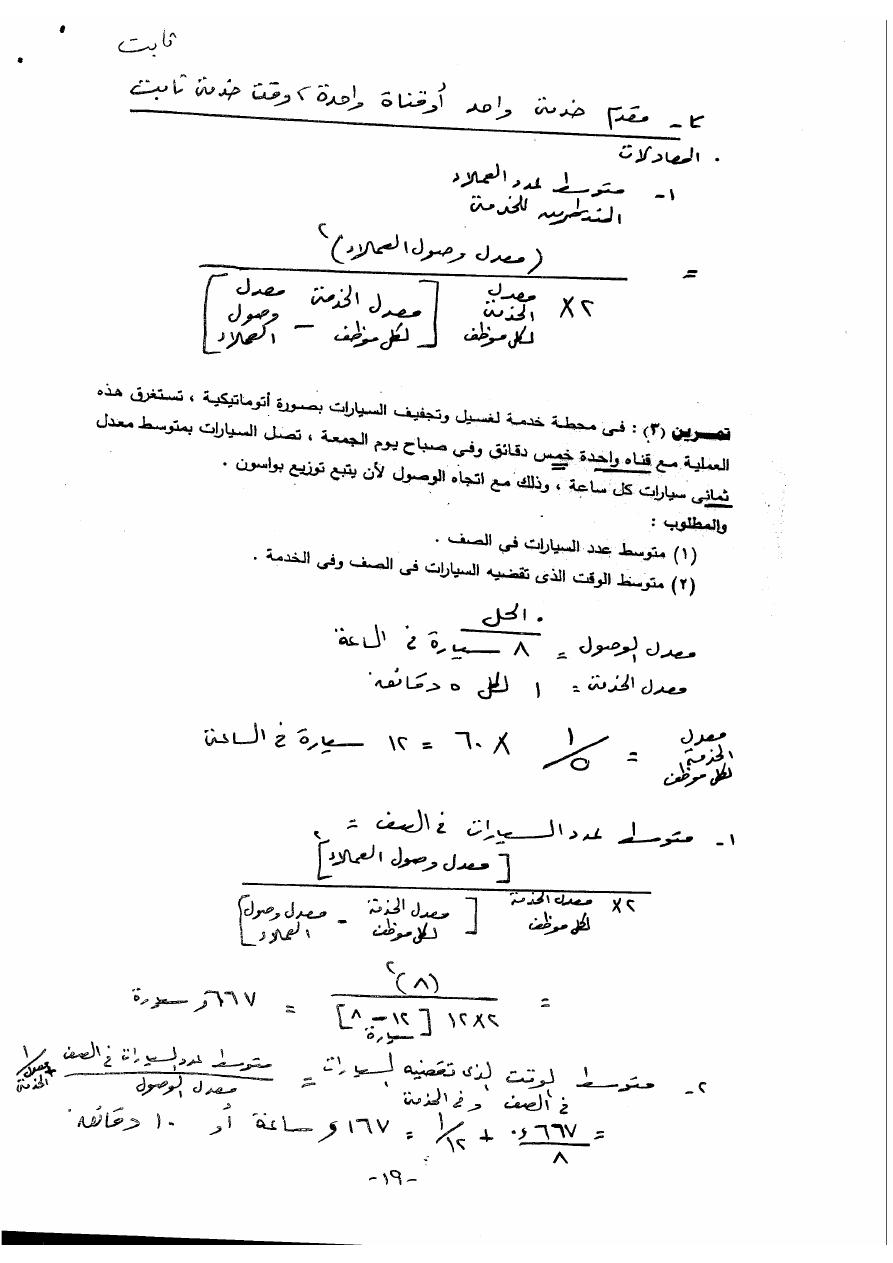 ثابت
٢- مقدم خدمة واحد أو قناة واحدة، وقت خدمة ثابت
. المعادلات
١- متوسط عدد العملاء
المنتظرين للخدمة
= (معدل وصول العملاء)٢
٢ × معدل الخدمة لكل موظف [معدل الخدمة لكل موظف - معدل وصول العملاء]
تمرين (٣) : فى محطة خدمة لغسيل وتجفيف السيارات بصورة أتوماتيكية ، تستغرق هذه
العملية مع قناه واحدة خمس دقائق وفى صباح يوم الجمعة ، تصل السيارات بمتوسط معدل
ثمانى سيارات كل ساعة ، وذلك مع اتجاه الوصول لأن يتبع توزيع بواسون .
والمطلوب :
(١) متوسط عدد السيارات فى الصف .
(٢) متوسط الوقت الذى تقضيه السيارات فى الصف وفى الخدمة .
. الحل
معدل الوصول = ٨ سيارة فى الساعة
معدل الخدمة = ١ لكل ٥ دقائق
معدل الخدمة لكل موظف = ١/٥ × ٦٠ = ١٢ سيارة فى الساعة
١- متوسط عدد السيارات فى الصف =
[معدل وصول العملاء]٢
٢× معدل الخدمة لكل موظف [معدل الخدمة لكل موظف - معدل وصول العملاء]
= (٨)٢
٢×١٢ [١٢ - ٨] = ٦٦٧و سيارة
سيارة
٢- متوسط الوقت الذى تقضيه السيارات فى الصف وفى الخدمة = متوسط عدد السيارات فى الصف / معدل الوصول + ١/معدل الخدمة
= ٦٦٧و٠ / ٨ + ١/١٢ = ١٦٧و ساعة أو ١٠ دقائق
-١٩-